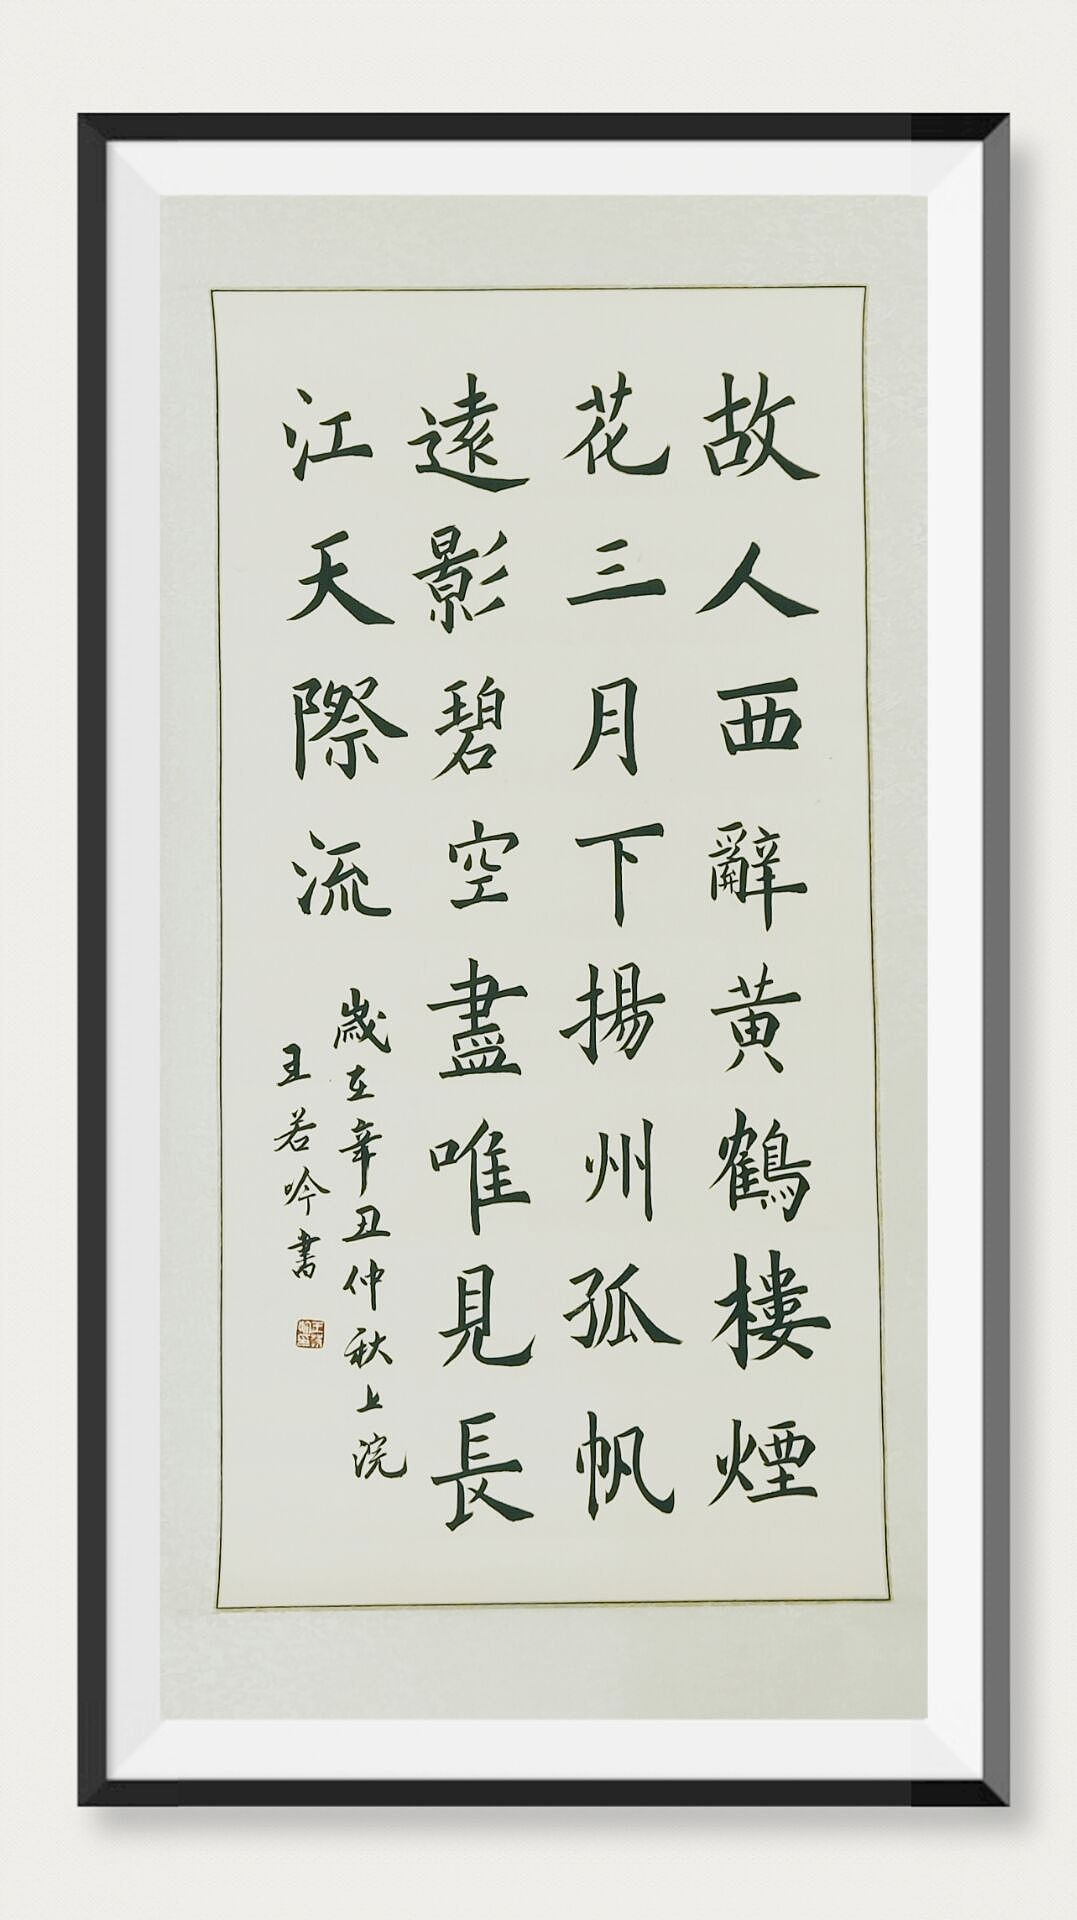 故人西辭黄鶴樓煙
花三月下揚州孤帆
遠影碧空盡唯見長
江天際流
歲在辛丑仲秋上浣
王若吟書